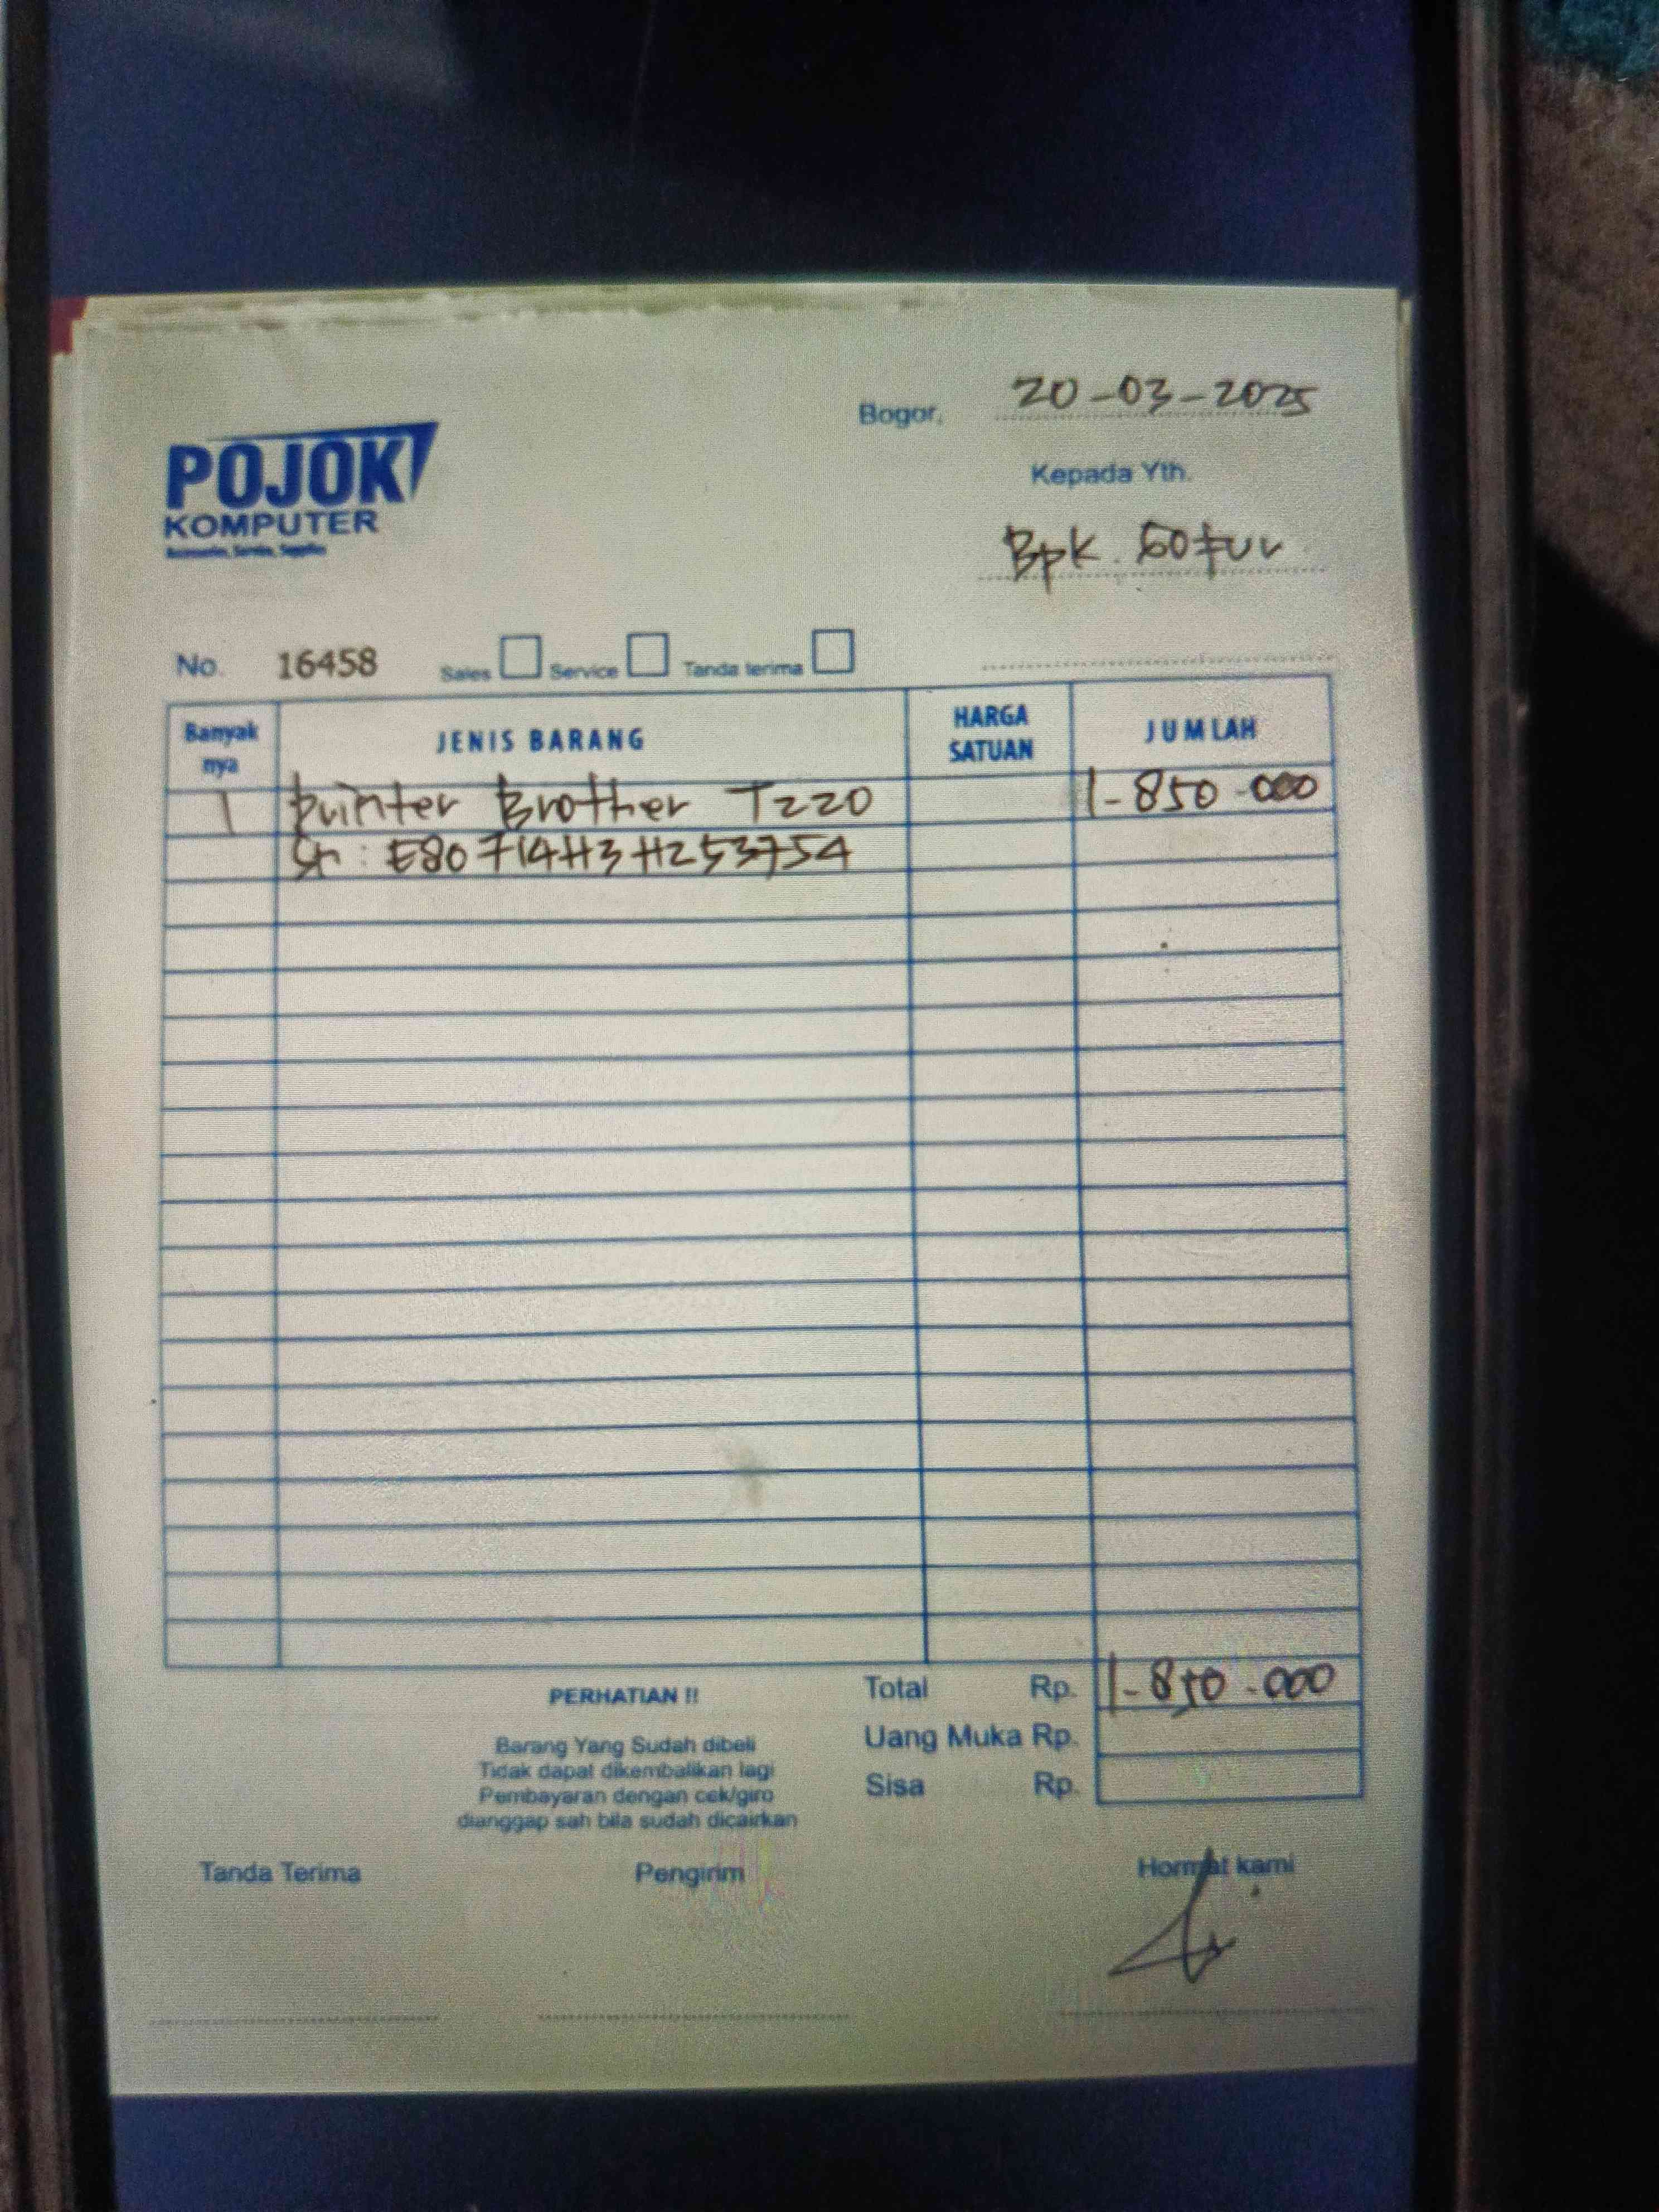 Bogor, 20-03-2025
POJOK
KOMPUTER
Accessories, Service, Supplies
Kepada Yth.
Bpk.
No. 16458 Sales Service Tanda terima
Banyak nya JENIS BARANG HARGA SATUAN JUMLAH
1 Printer Brother T220 1-850-000
Sn: E80714H3H253754
Total Rp. 1-850-000
Uang Muka Rp.
Sisa Rp.
PERHATIAN !!
Barang Yang Sudah dibeli
Tidak dapat dikembalikan lagi
Pembayaran dengan cek/giro
dianggap sah bila sudah dicairkan
Tanda Terima Pengirim Hormat kami